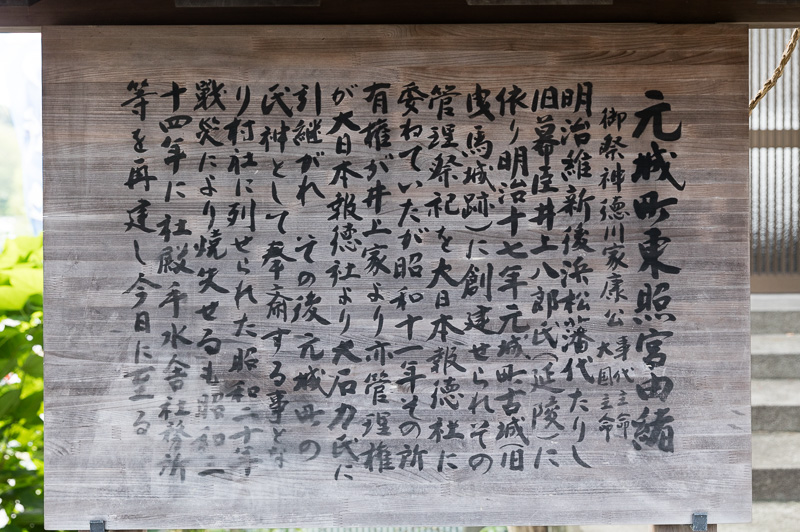 元城町東照宮由緒
御祭神德川家康公 事代主命
大国主命
明治維新後浜松藩代たりし
旧幕臣井上八郎氏(延陵)に
依り明治十七年元城町古城(旧
曳馬城跡)に創建せられその
管理祭祀を大日本報徳社に
委ねていたが昭和十一年その所
有権が井上家より亦管理権
が大日本報徳社より大石力氏に
引継がれ その後元城町の
氏神として奉斎する事とな
り村社に列せられた昭和二十年
戦災により焼失せるも昭和三
十四年に社殿手水舎社務所
等を再建し今日に至る